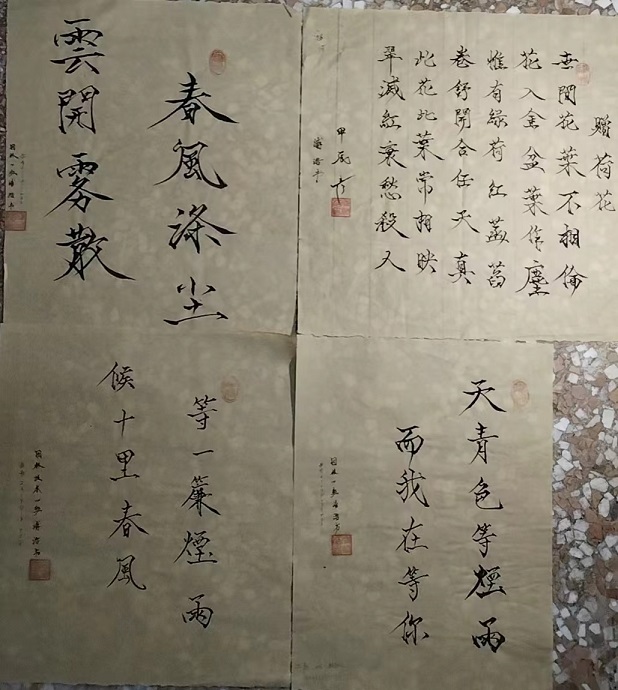 春風涤尘
雲開雾散
赠荷花
世間花葉不相倫
花入金盆葉作塵
惟有绿荷红菡萏
卷舒開合任天真
此花此葉常相映
翠減紅衰愁殺人
等一簾煙雨
候十里春風
天青色等煙雨
而我在等你